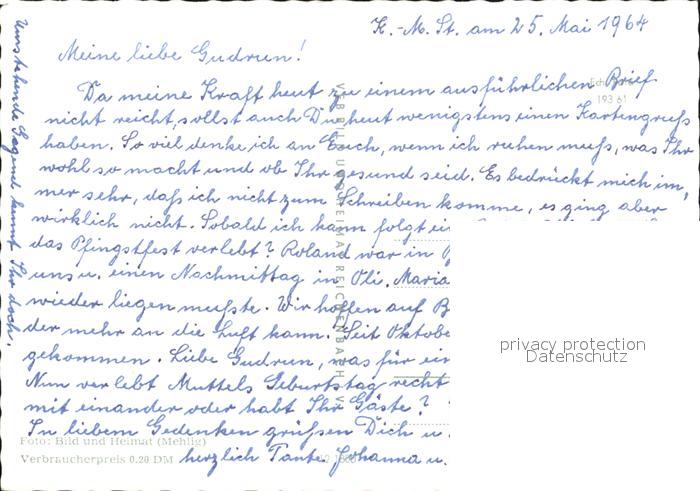 K.-M. St. am 25. Mai 1964
Meine liebe Gudrun!
Da meine Kraft heut zu einem ausführlichen Brief
nicht reicht, sollst auch Du heut wenigstens einen Kartengruß
haben. So viel denke ich an Euch, wenn ich ruhen muß, was Ihr
wohl so macht und ob Ihr gesund seid. Es bedrückt mich im,
mer sehr, daß ich nicht zum Schreiben komme, es ging aber
wirklich nicht. Sobald ich kann folgt ei
das Pfingstfest verlebt? Roland war in
uns u. einen Nachmittag in Oli. Maria
wieder liegen mußte. Wir hoffen auf B
der mehr an die Luft kann. Seit Oktobe
gekommen. Liebe Gudrun, was für ein
Nun verlebt Muttels Geburtstag recht
miteinander oder habt Ihr Gäste?
In liebem Gedenken grüßen Dich u.
herzlich Tante Johanna u.
Umstehende Gegend kennt Ihr doch.
193 61
VERLAG BILD UND HEIMAT REICHENBACH I. V.
Foto: Bild und Heimat (Mehlig)
Verbraucherpreis 0.20 DM
privacy protection
Datenschutz